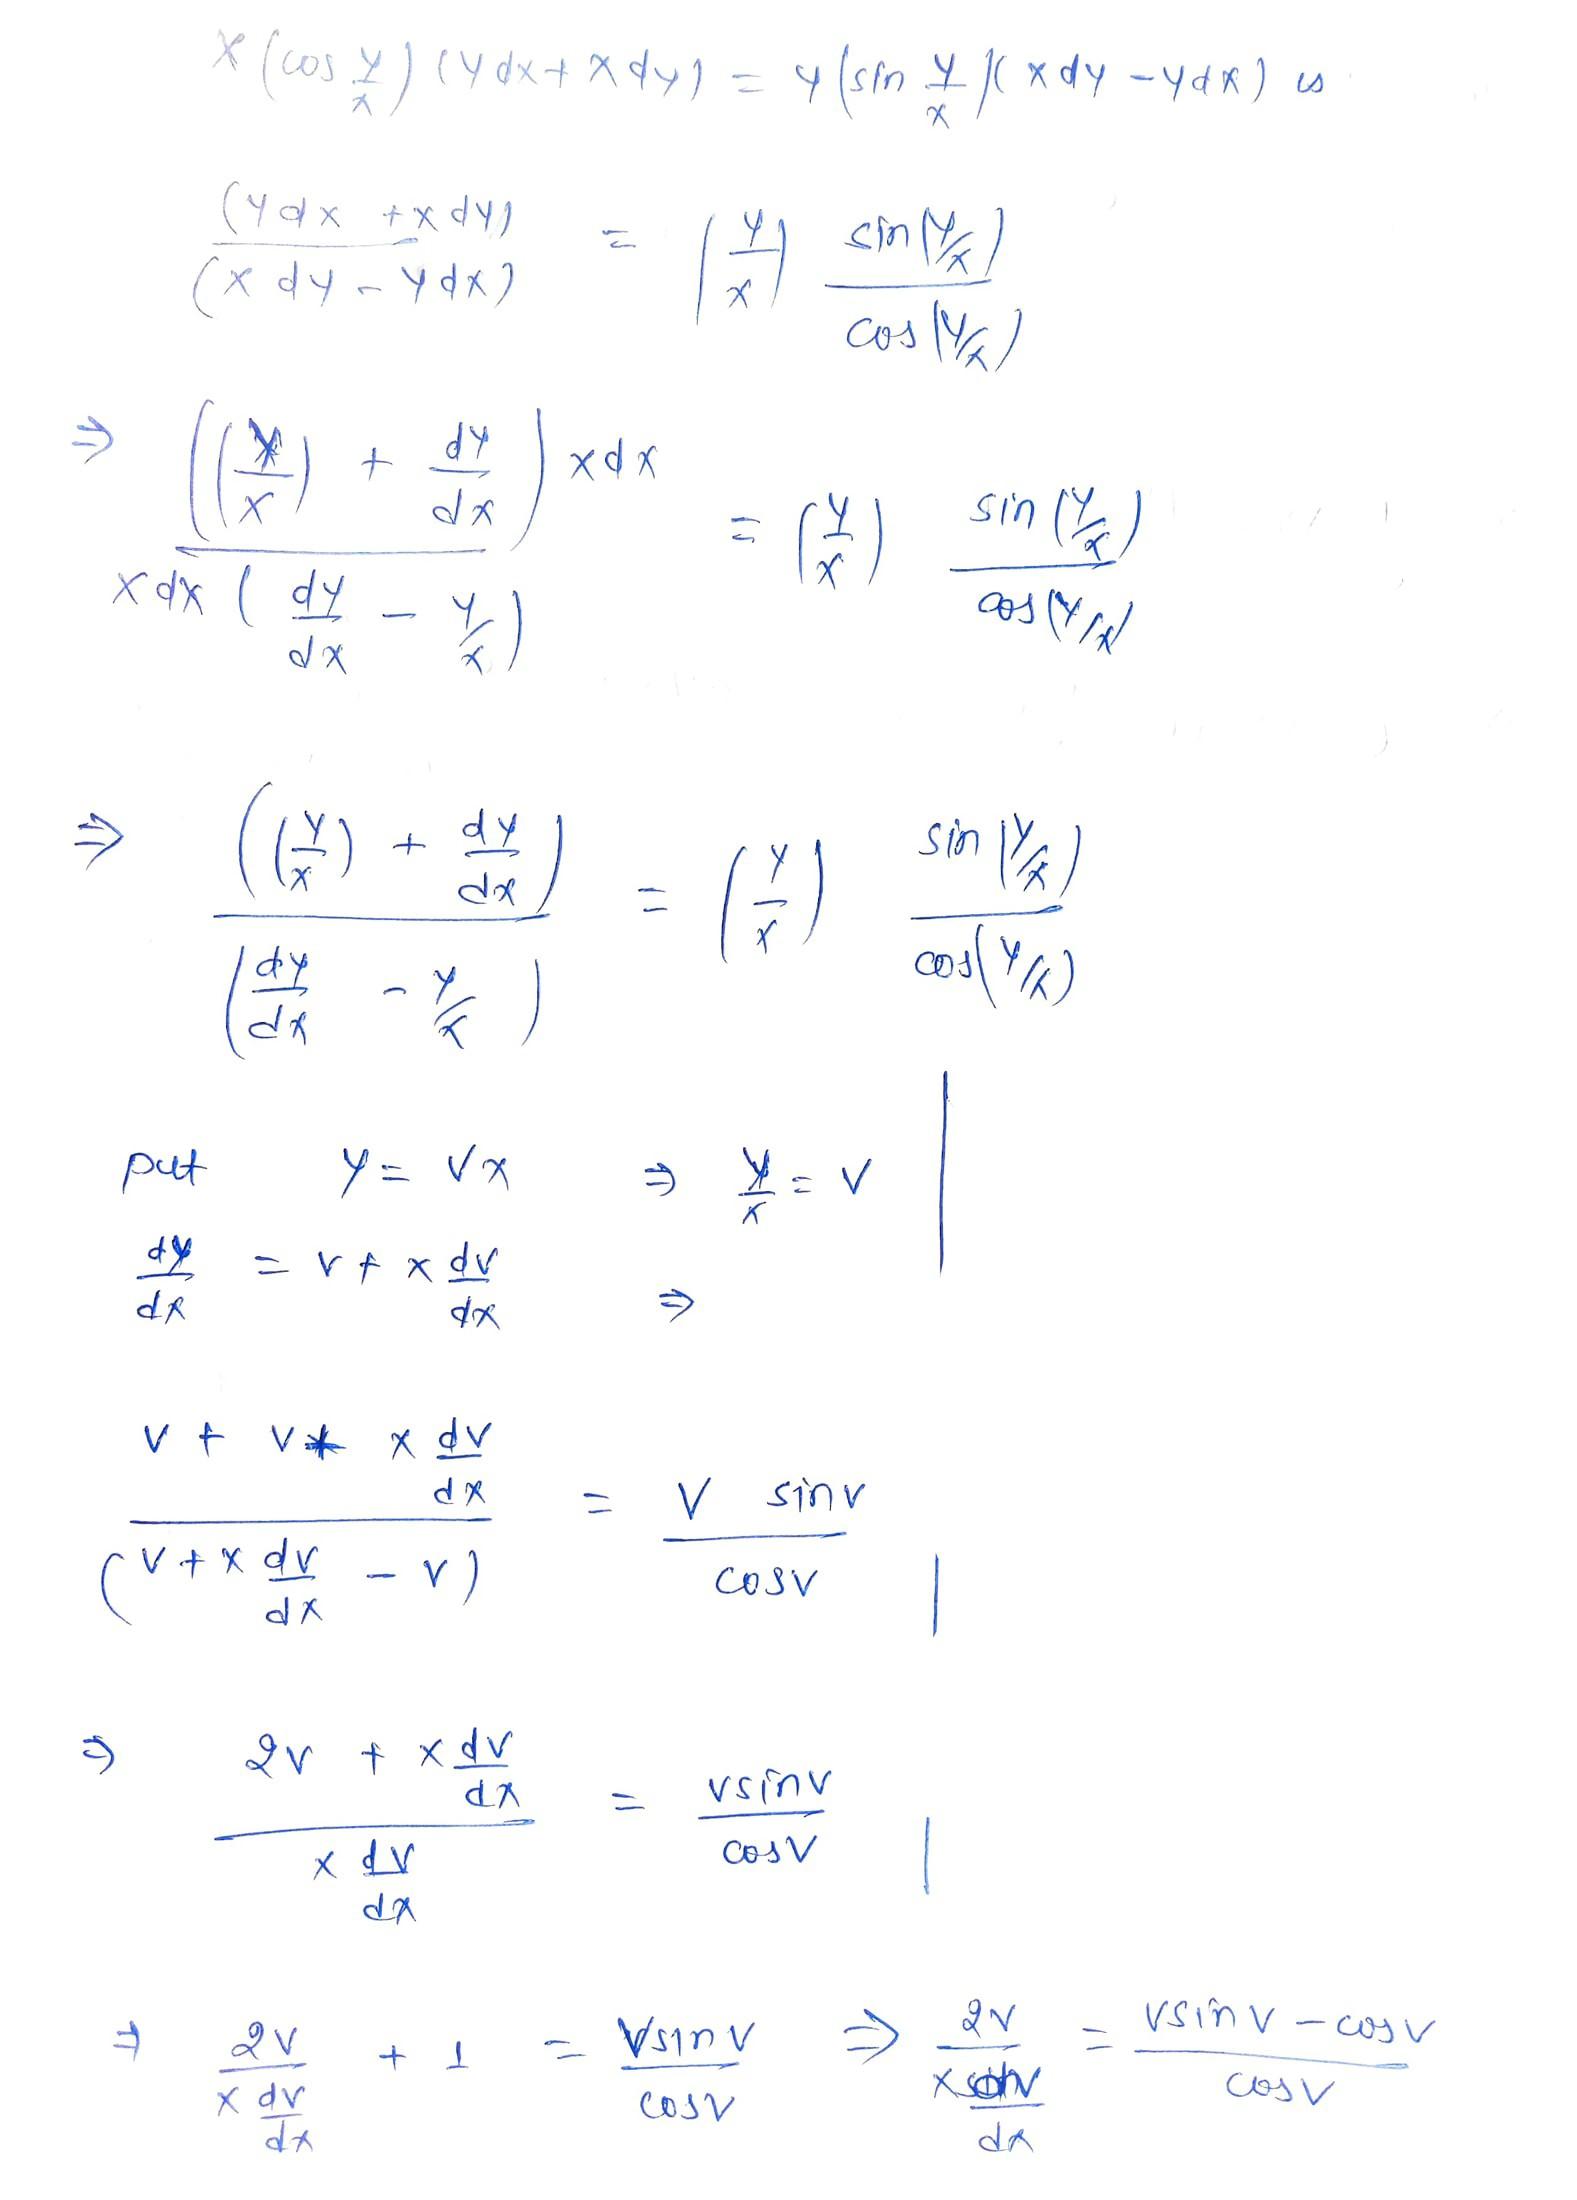 x (cos y/x) (ydx + xdy) = y (sin y/x)(xdy - ydx) is
(ydx + xdy)/(xdy - ydx) = (y/x) sin(y/x)/cos(y/x)
⇒ ((y/x) + dy/dx) xdx / xdx (dy/dx - y/x) = (y/x) sin(y/x)/cos(y/x)
⇒ ((y/x) + dy/dx)/(dy/dx - y/x) = (y/x) sin(y/x)/cos(y/x)
put y = vx ⇒ y/x = v
dy/dx = v + x dv/dx ⇒
v + v + x dv/dx / (v + x dv/dx - v) = v sinv / cosv
⇒ 2v + x dv/dx / x dv/dx = vsinv / cosv
⇒ 2v / x dv/dx + 1 = vsinv / cosv ⇒ 2v / x dv/dx = vsinv - cosv / cosv